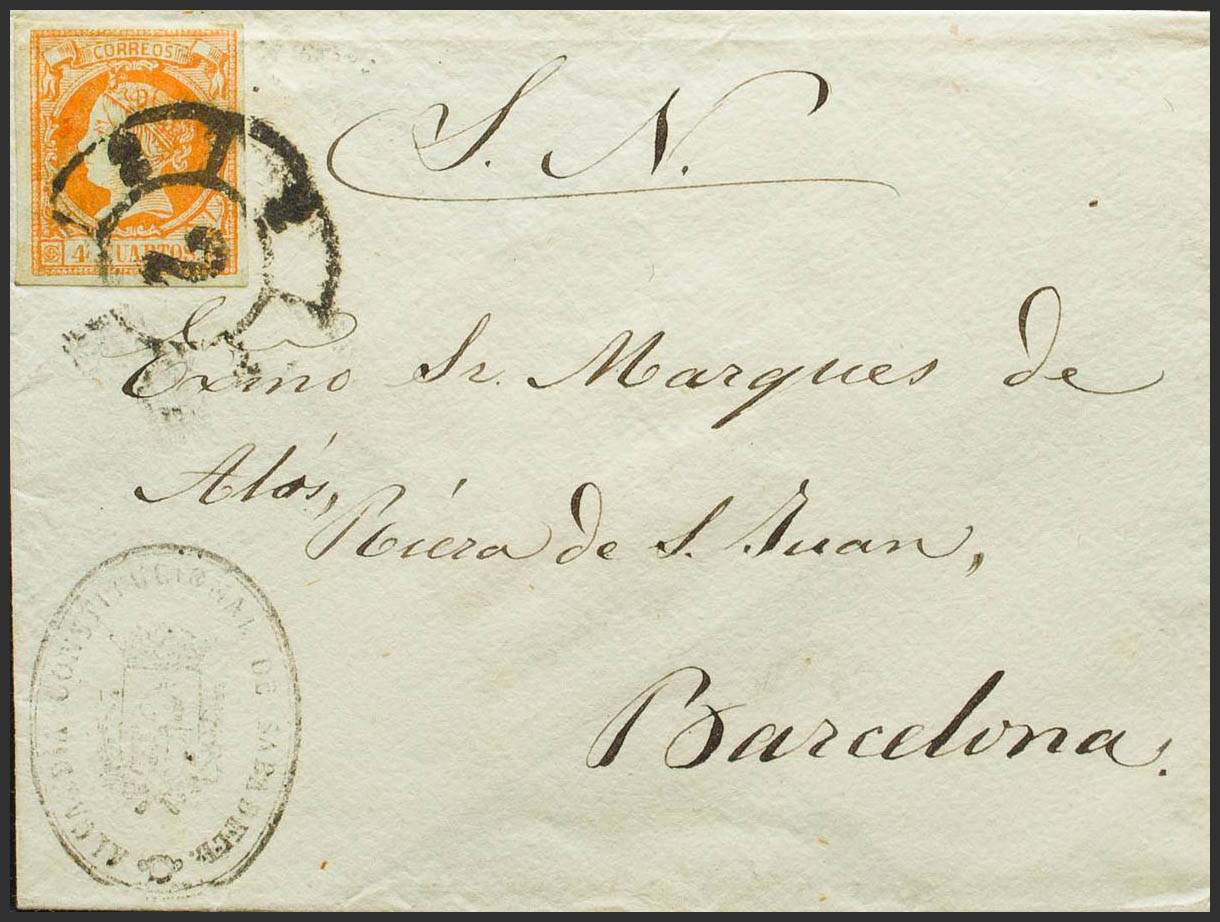 CORREOS
4 CUARTOS
2
S. N.
Exmo Sr. Marques de
Alós,
Riera de S. Juan,
Barcelona.
ALCALDIA CONSTITUCIONAL DE SABADELL.